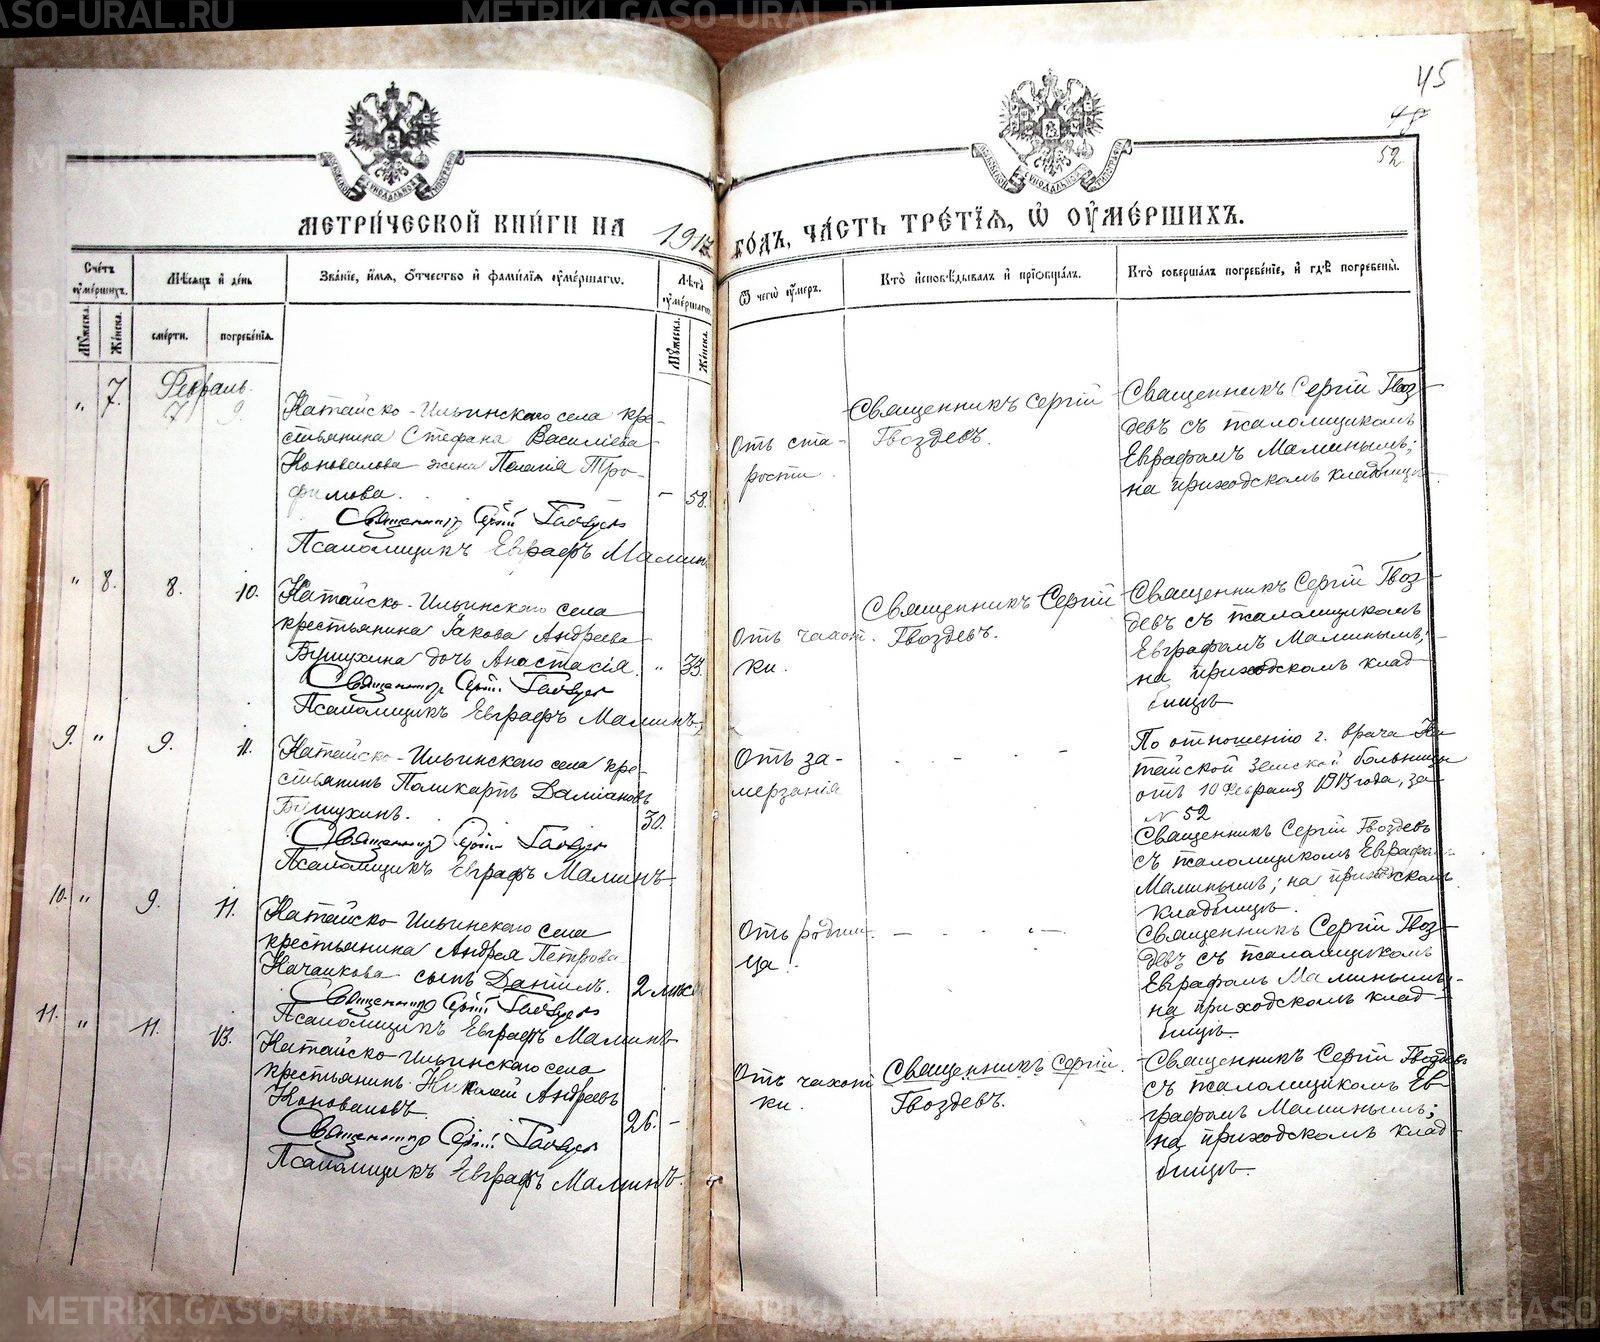 METRIKI.GASO-URAL.RU
45
52
МЕТРИ́ЧЕСКОЙ КНИ́ГИ НА 191 ГО́ДЪ, ЧА́СТЬ ТРЕ́ТIѦ, Ѡ҆ ОУ҆МЕ́РШИХЪ.
Сче́тъ оу҆ме́ршихъ.
Мѣ́сѧцъ и҆ де́нь
Зва́нїе, и҆́мѧ, ѻ҆́тчество и҆ фами́лїѧ оу҆ме́ршагѡ.
Лѣ́та оу҆ме́ршагѡ.
Ѿ чегѡ̀ оу҆́меръ.
Кто̀ и҆сповѣ́дывалъ и҆ прїѡбща́лъ.
Кто̀ соверша́лъ погребе́нїе, и҆ гдѣ̀ погребены̀.
Мꙋ́жеска.
Же́нска.
сме́рти.
погребе́нїѧ.
Мꙋ́жеска.
Же́нска.
Февраль.
" 7. 7 9
Катайско-Ильинскаго села кре-
стьянина Стефана Василіева
Коновалова жена Пелагія Тро-
фимова. - 58.
Священникъ Сергій Гвоздевъ
Псаломщикъ Евграфъ Маминъ
Отъ ста-
рости
Священникъ Сергій
Гвоздевъ.
Священникъ Сергій Гвоз-
девъ съ псаломщикомъ
Евграфомъ Маминымъ;
на приходскомъ кладбищѣ
" 8. 8. 10.
Катайско-Ильинскаго села
крестьянина Іакова Андреева
дочь Анастасія. "
Священникъ Сергій Гвоздевъ
Псаломщикъ Евграфъ Маминъ.
Отъ чахот-
ки.
Священникъ Сергій
Гвоздевъ.
Священникъ Сергій Гвоз-
девъ съ псаломщикомъ
Евграфомъ Маминымъ;
на приходскомъ клад-
бищѣ
9. " 9. 11.
Катайско-Ильинскаго села кре-
стьянинъ Поликарпъ Даміановъ
30.
Священникъ Сергій Гвоздевъ
Псаломщикъ Евграфъ Маминъ
Отъ за-
мерзанія
По отношенію г. врача Ка-
тайской Земской больницы
отъ 10 Февраля года, за
№ 52
Священникъ Сергій Гвоздевъ
съ псаломщикомъ Евграфом-
Маминымъ; на приходскомъ
кладбищѣ.
10. " 9. 11.
Катайско-Ильинскаго села
крестьянина Андрея Петрова
сынъ Даніилъ. 2 мѣся
Священникъ Сергій Гвоздевъ
Псаломщикъ Евграфъ Маминъ
Отъ родим-
ца.
Священникъ Сергій Гвоз-
девъ съ псаломщикомъ
Евграфомъ Маминымъ;
на приходскомъ клад-
бищѣ.
11. " 11. 13.
Катайско-Ильинскаго села
крестьянинъ Николай Андреевъ
Коноваловъ. 26. -
Священникъ Сергій Гвоздевъ
Псаломщикъ Евграфъ Маминъ.
Отъ чахот
ки.
Священникъ Сергій
Гвоздевъ.
Священникъ Сергій Гвоздевъ
съ псаломщикомъ Ев-
графомъ Маминымъ;
на приходскомъ клад-
бищѣ.
METRIKI.GASO-URAL.RU